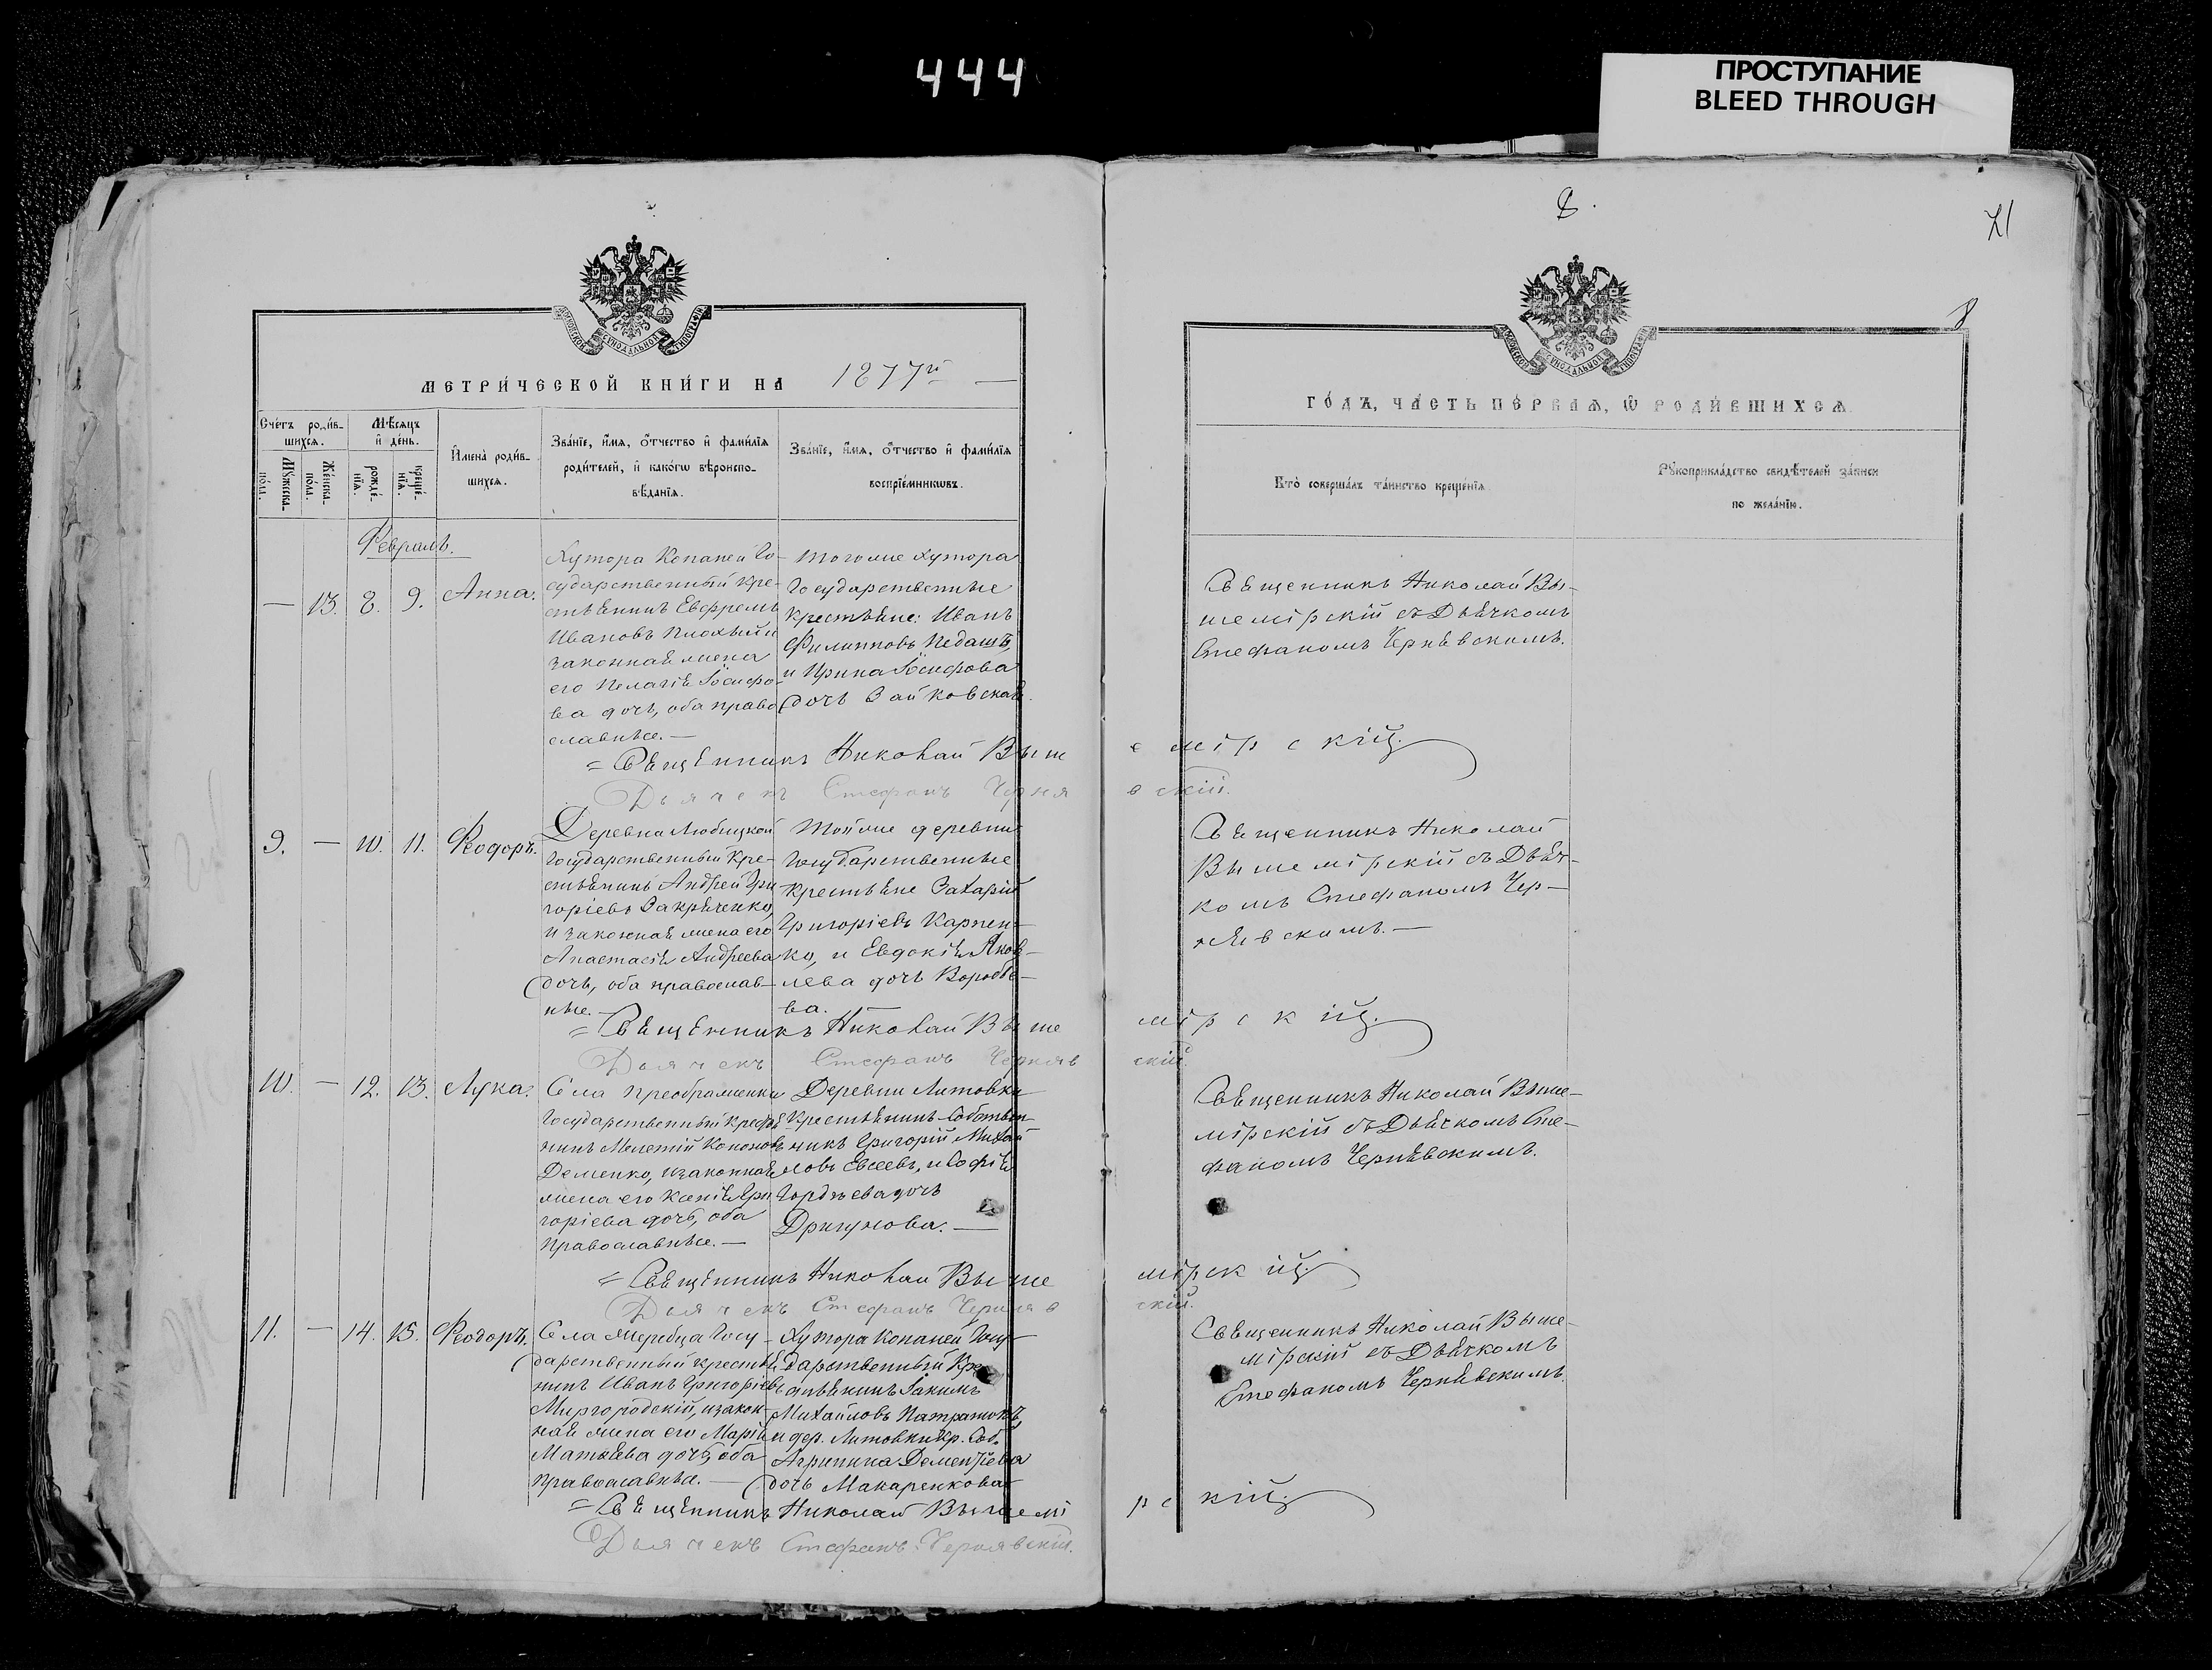 444
ПРОСТУПАНИЕ
BLEED THROUGH
8.
21
8
МОСКОВСКОЙ СѴНОДАЛЬНОЙ ТИПОГРАФІИ
МОСКОВСКОЙ СѴНОДАЛЬНОЙ ТИПОГРАФІИ
МЕТРИ́ЧЕСКОЙ КНИ́ГИ НА 1877й
ГО́ДЪ, ЧА́СТЬ ПЕ́РВАѦ, Ѡ҆ РОДИ́ВШИХСѦ.
Сче́тъ роди́в-
шихсѧ.
Мꙋ́жеска-
по́ла.
Же́нска-
по́ла.
Мѣ́сѧцъ
и҆ де́нь.
рожде́-
нїѧ.
креще́-
нїѧ.
И҆мена̀ роди́в-
шихсѧ.
Зва́нїе, и҆́мѧ, ѻ҆́тчество и҆ фами́лїѧ
роди́телей, и҆ како́гѡ вѣроиспо-
вѣ́данїѧ.
Зва́нїе, и҆́мѧ, ѻ҆́тчество и҆ фами́лїѧ
воспрїе́мникѡвъ.
Кто̀ соверша́лъ та́инство креще́нїѧ.
Рꙋкоприкла́дство свидѣ́телей за́писи
по жела́нїю.
Февраль.
— 13. 8. 9. Анна.
Хутора Копаней Го-
сударственный кре-
стьянинъ Евфремъ
Ивановъ Плохый и
законная жена
его Пелагія Іосифо-
ва дочь, оба право
славные. —
Тогоже хутора
Государственные
крестьяне: Иванъ
Филипповъ Педашъ,
и Ирина Іосифова
дочь Зайковская.
Священникъ Николай Вы-
шемірскій съ Дьячкомъ
Стефаномъ Чернявскимъ.
= Священникъ Николай Вышемірскій.
Дьячекъ Стефанъ Чернявскій.
9. — 10. 11. Ѳеодоръ.
Деревни Любицкой
Государственный кре-
стьянинъ Андрей Гри
горіевъ Закряченко,
и законная жена его
Анастасія Андреева
дочь, оба православ-
ные. —
Тойже деревни
Государственные
крестьяне Захарій
Григоріевъ Карпен-
ко, и Евдокія Яков-
лева дочь Воробье-
ва. —
Священникъ Николай
Вышемірскій съ Дьяч-
комъ Стефаномъ Чер-
нявскимъ. —
= Священникъ Николай Вышемірскій.
Дьячекъ Стефанъ Чернявскій
10. — 12. 13. Лука.
Села Преображенки
Государственный крестья
нинъ Мелетій Кононовъ
Деменко, и законная
жена его Ксенія Гри
горіева дочь, оба
Православные. —
Деревни Литовки
Крестьянинъ-Собствен-
никъ Григорій Михай
ловъ Евсеевъ, и Софія
Гордѣева дочь
Дригунова. —
Священникъ Николай Выше-
мірскій съ Дьячкомъ Сте-
фаномъ Чернявскимъ.
= Священникъ Николай Вышемірскій.
Дьячекъ Стефанъ Чернявскій.
11. — 14. 15. Ѳеодоръ.
Села Жеребца Госу-
дарственный крестья
нинъ Иванъ Григоріевъ
Миргородскій, и закон-
ная жена его Марія
Матвѣева дочь, оба
Православные. —
Хутора Копаней Госу-
дарственный Кре
стьянинъ Іакимъ
Михайловъ
и дер. Литовки Кр. Соб.
Агрипина Дементіева
дочь Макаренкова
Священникъ Николай Выше-
мірскій съ Дьячкомъ
Стефаномъ Чернявскимъ.
= Священникъ Николай Вышемірскій.
Дьячекъ Стефанъ Чернявскій.